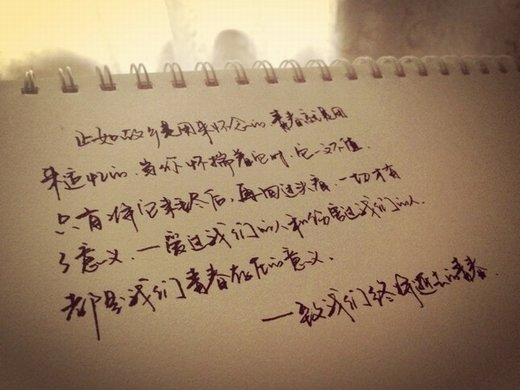 正如故乡是用来怀念的，青春就是用
来追忆的，当你怀揣着它时，它一文不值，
只有将它耗尽后，再回过头看，一切才有
了意义，—爱过我们的人和伤害过我们的人，
都是我们青春存在的意义。
—致我们终将逝去的青春.